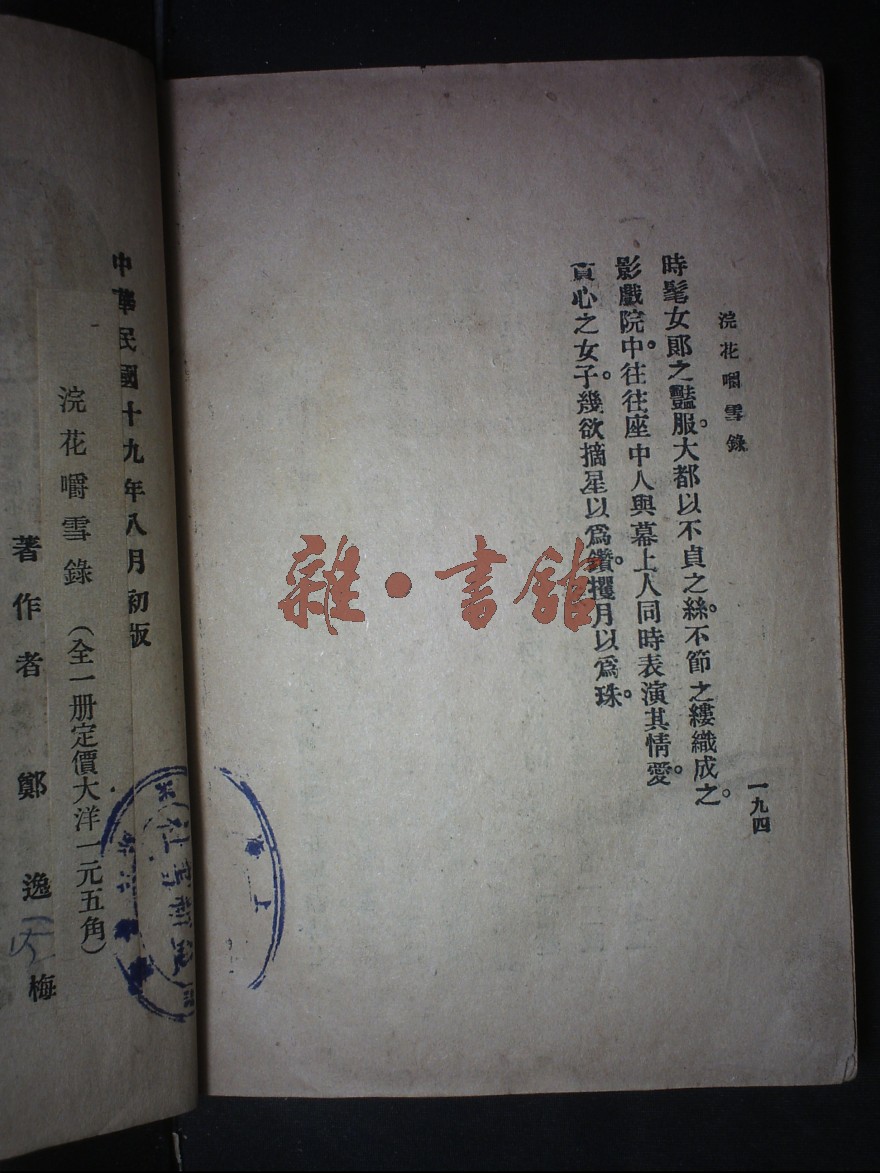 浣花嚼雪錄
一九四
時髦女郎之豔服。大都以不貞之絲。不節之縷織成之。
影戲院中。往往座中人與幕上人同時表演其情愛。
貪心之女子。幾欲摘星以爲鑽。攫月以爲珠。
中華民國十九年八月初版
浣花嚼雪錄（全一册定價大洋一元五角）
著作者 鄭逸梅
雜·書館
上海